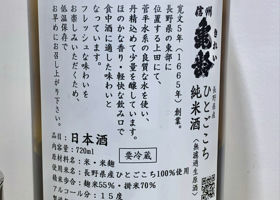 信州
亀齢
きれい
長野県産
ひとごこち
純米酒
(無濾過生原酒)
寛文5年(1665年)創業。
長野県の東部に
位置する上田にて、
菅平水系の良質な水を使い、
丹精込めて少量を醸しています。
ほのかな香り・軽快な飲み口で
食中酒に適した味わいと
なっています。
フレッシュな味わいを
お楽しみいただくため、
低温保存で
お早めにお召し上がり下さい。
品目:日本酒
内容量:720ml
要冷蔵
原材料名:米・米麹
原料米:長野県産ひとごこち100%使用
精米歩合:麹米55%・掛米70%
アルコール分:15度